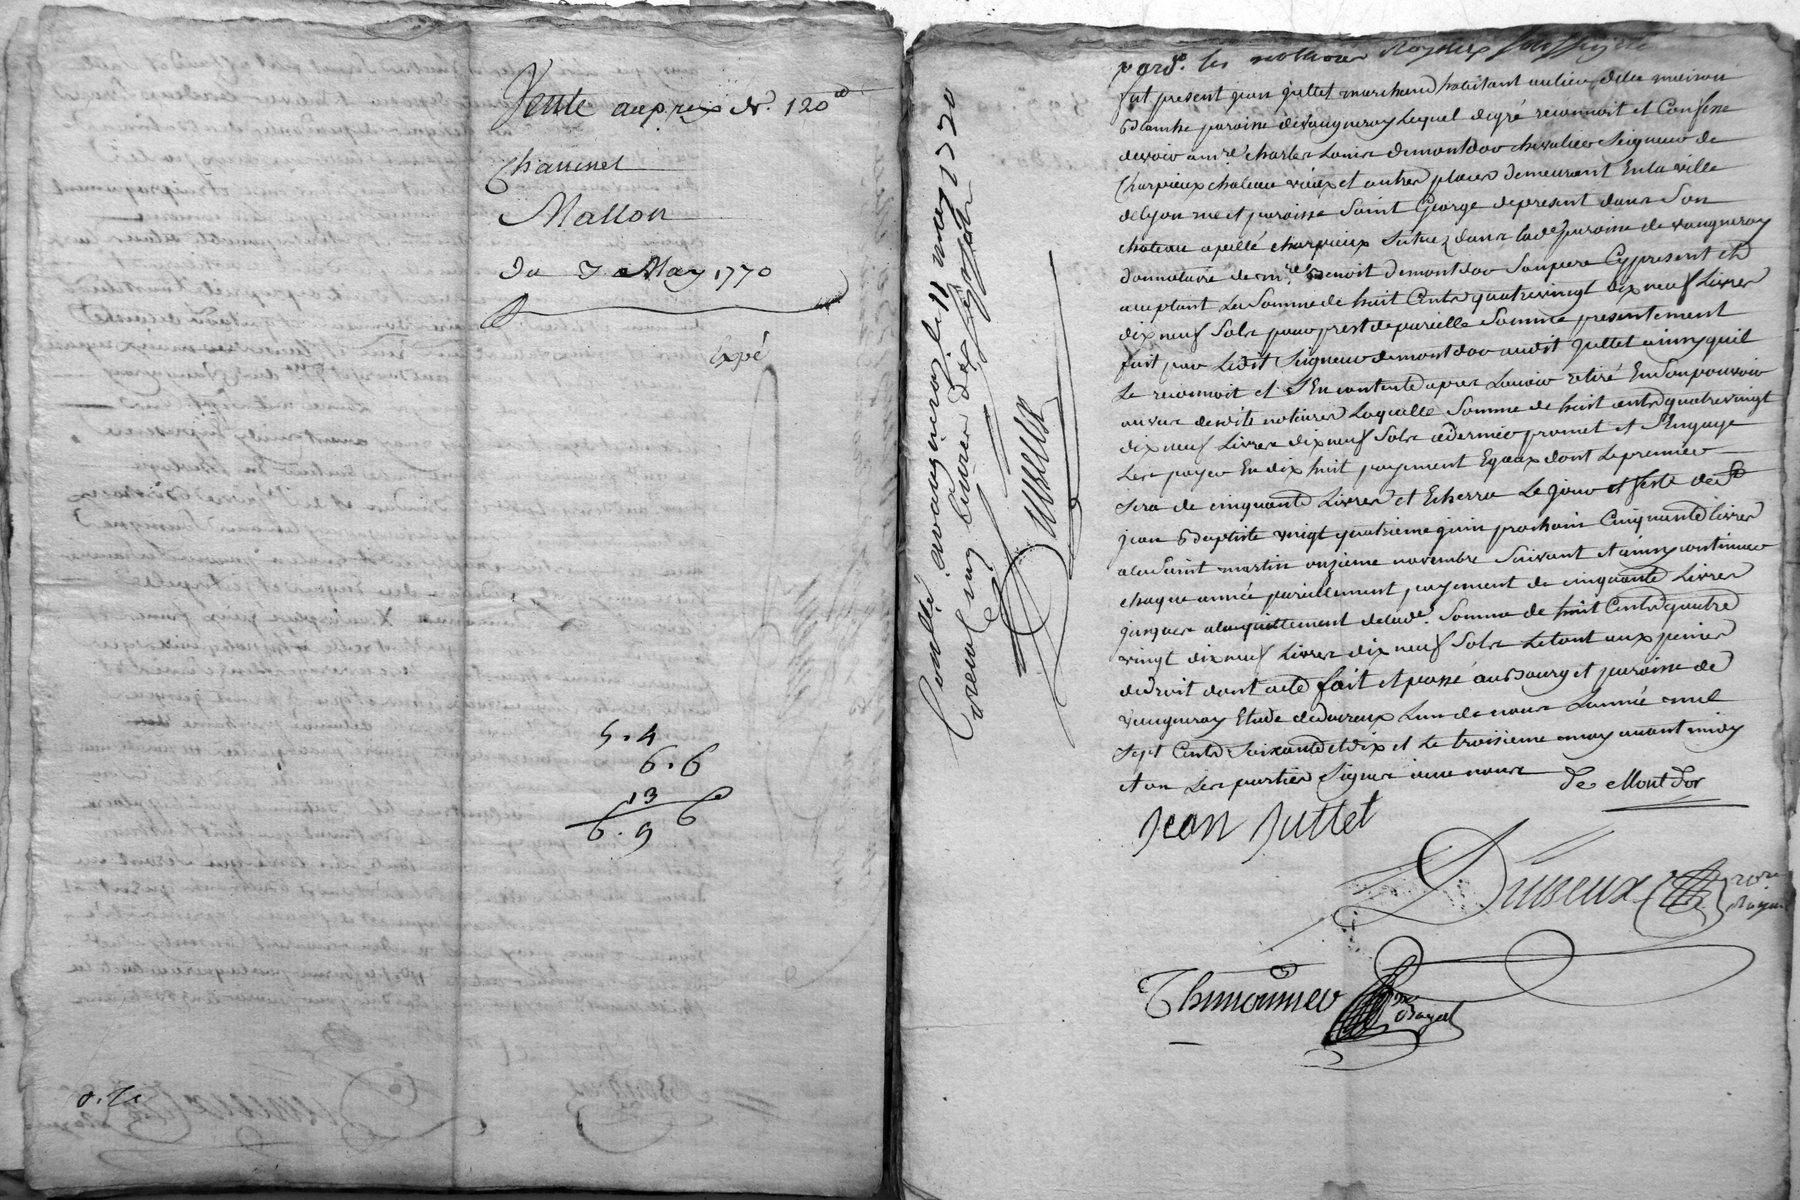 Vente au prix de 120ᵗᵗ
Chavinet
Mallon
Du 3 May 1770
expé
5. 4
6. 6
13
6. 9 6
Controllé a vaugneray le 11 may 1770
Duvreux
pard. les notaires Royaux soussignés
fut present jean juttet marchand habitant au lieu de la maison
Blanche paroisse de vaugneray lequel de gré reconnoit et Confesse
devoir a mre charles Louis de montdor chevalier Seigneur de
Charpieux chateau vieux et autres places demeurant En la ville
de lyon rue et paroisse Saint George de present dans Son
chateau apellé charpieux Situez dans lade paroisse de vaugneray
donnataire de mre Benoit de montdor Son pere Cy present et
acceptant La Somme de huit Cents quatre vingt dix neuf Livres
dix neuf Sols pour prest de pareille Somme presentement
fait par Ledit Seigneur de montdor audit Juttet ainsy quil
Le reconnoit et S'En contente apres Lavoir retiré En Son pouvoir
au vue desdits notaires Laquelle Somme de huit cents quatre vingt
dix neuf Livres dix neuf Sols ce dernier promet et S'Engage
Les payer En dix huit payement Egaux dont Le premier
Sera de cinquante Livres et Echerra Le Jour et feste de St
jean Baptiste vingt quatrieme juin prochain Cinquante livres
a la Saint martin onzieme novembre Suivant et ainsy continuer
chaque année pareillement payement de cinquante Livres
jusques a laquittement de lade. Somme de huit Cents quatre
vingt dix neuf Livres dix neuf Sols Le tout aux peines
de droit dont acte fait et passé au Bourg et paroisse de
vaugneray Etude de duvreux Lun de nous Lannée mil
Sept Cents Soixante et dix et Le troisieme may avant midy
et on Les parties Signes avec nous
de Montdor
Jean Juttet
Duvreux
nore Royal
Thimonnier
Royal